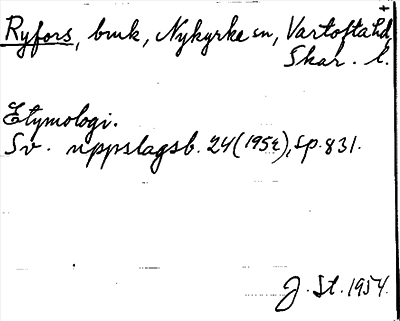 Ryfors, bruk, Nykyrke sn, Vartofta hd,
Skar. l.
Etymologi.
Sv. uppslagsb. 24 (1952), sp. 831.
J. St. 1954.